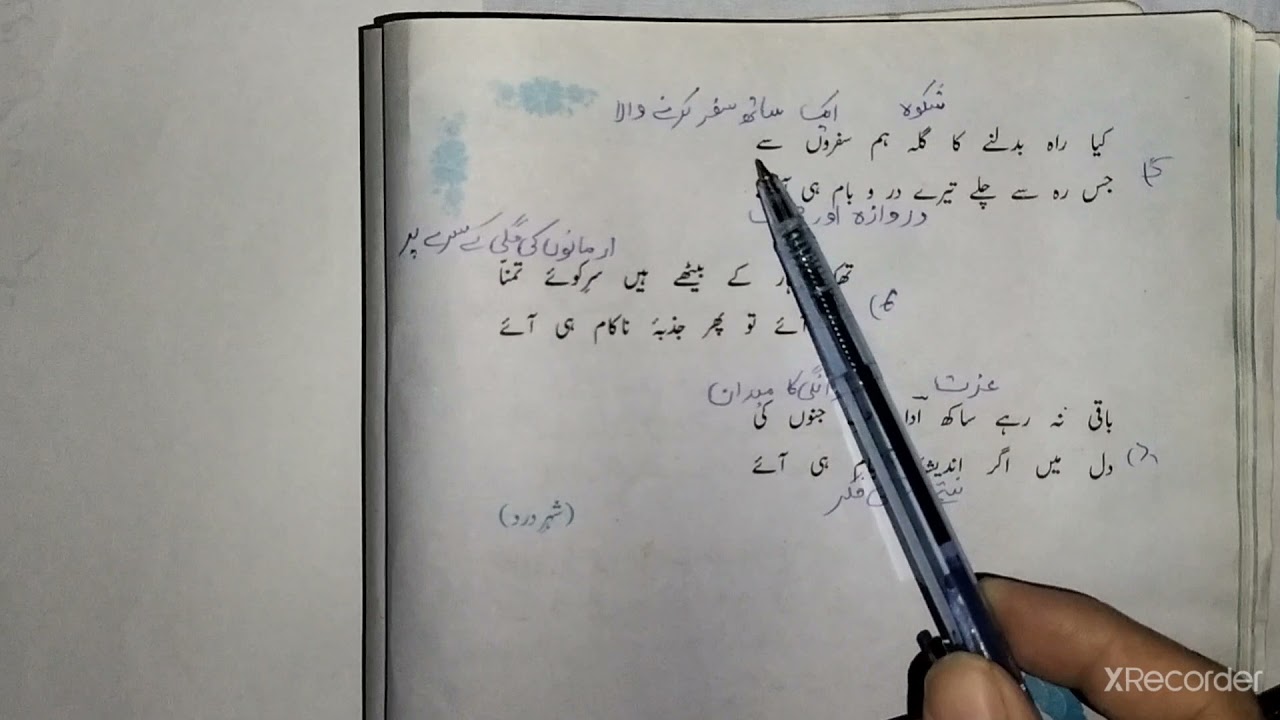 شکوہ ایک ساتھ سفر کرنے والا
کیا راہ بدلنے کا گلہ ہم سفروں سے
جس رہ سے چلے تیرے در و بام ہی
دروازہ اور
ارمانوں کی گلی کے سرے پر
تھک ہار کے بیٹھے ہیں سرِ کوئے تمنّا
آئے تو پھر جذبۂ ناکام ہی آئے
عزت کا میدان
باقی نہ رہے ساکھ ادا جنوں کی
دل میں اگر اندیشۂ ہی آئے
فکر
(شہرِ درد)
XRecorder